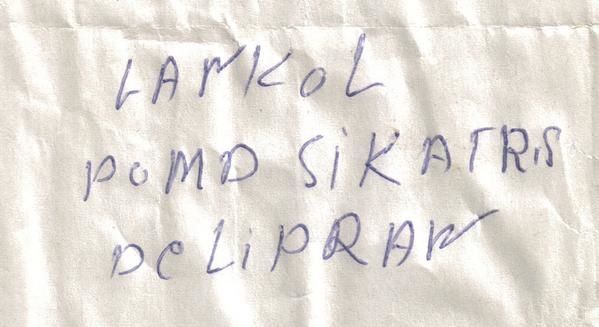 LANKOL
POMD SiKATRiS
DeLiPRAN